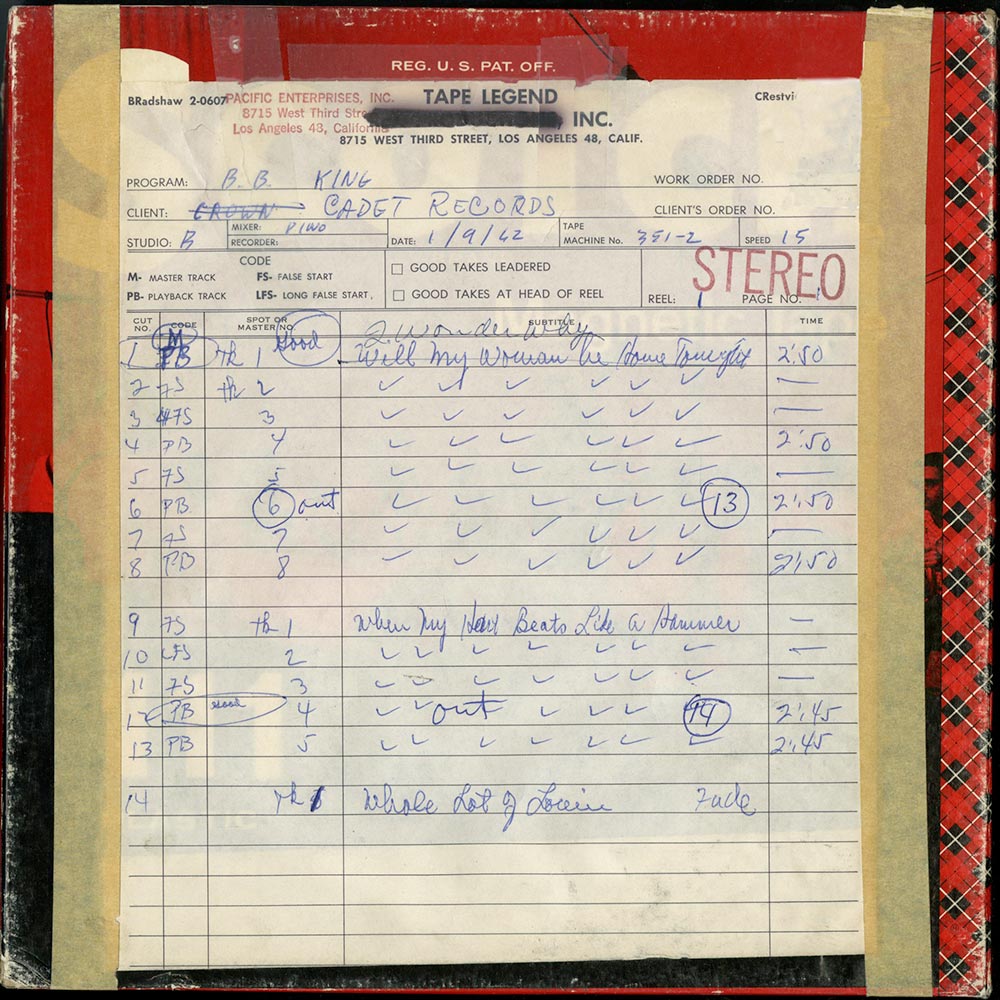 REG. U. S. PAT. OFF.
BRadshaw 2-0607 PACIFIC ENTERPRISES, INC. TAPE LEGEND CRestvi
8715 West Third Stre INC.
Los Angeles 48, California
8715 WEST THIRD STREET, LOS ANGELES 48, CALIF.
PROGRAM: B. B. KING WORK ORDER NO.
CLIENT: CROWN CADET RECORDS CLIENT'S ORDER NO.
STUDIO: B MIXER: PIWO RECORDER: DATE: 1/9/62 TAPE MACHINE No. 351-2 SPEED 15
CODE
M- MASTER TRACK FS- FALSE START
PB- PLAYBACK TRACK LFS- LONG FALSE START,
GOOD TAKES LEADERED
GOOD TAKES AT HEAD OF REEL
STEREO
REEL: 1 PAGE NO. 1
CUT NO. CODE SPOT OR MASTER NO. SUBTITLE TIME
M Good I wonder why
1 PB Tk 1 Will My Woman be Home Tonight 2:50
2 FS tk 2 ✓ ✓ ✓ ✓ ✓ ✓ —
3 FS 3 ✓ ✓ ✓ ✓ ✓ ✓ —
4 PB 4 ✓ ✓ ✓ ✓ ✓ ✓ 2:50
5 FS 5 ✓ ✓ ✓ ✓ ✓ ✓ —
6 PB 6 out ✓ ✓ ✓ ✓ ✓ ✓ 13 2:50
7 FS 7 ✓ ✓ ✓ ✓ ✓ ✓ —
8 PB 8 ✓ ✓ ✓ ✓ ✓ ✓ 2:50
9 FS tk 1 When My Heart Beats Like a Hammer —
10 LFS 2 ✓ ✓ ✓ ✓ ✓ ✓ ✓ —
11 FS 3 ✓ ✓ ✓ ✓ ✓ ✓ —
12 PB Good 4 ✓ ✓ out ✓ ✓ ✓ 14 2:45
13 PB 5 ✓ ✓ ✓ ✓ ✓ ✓ ✓ 2:45
14 Tk 1 Whole Lot of Lovin Fade